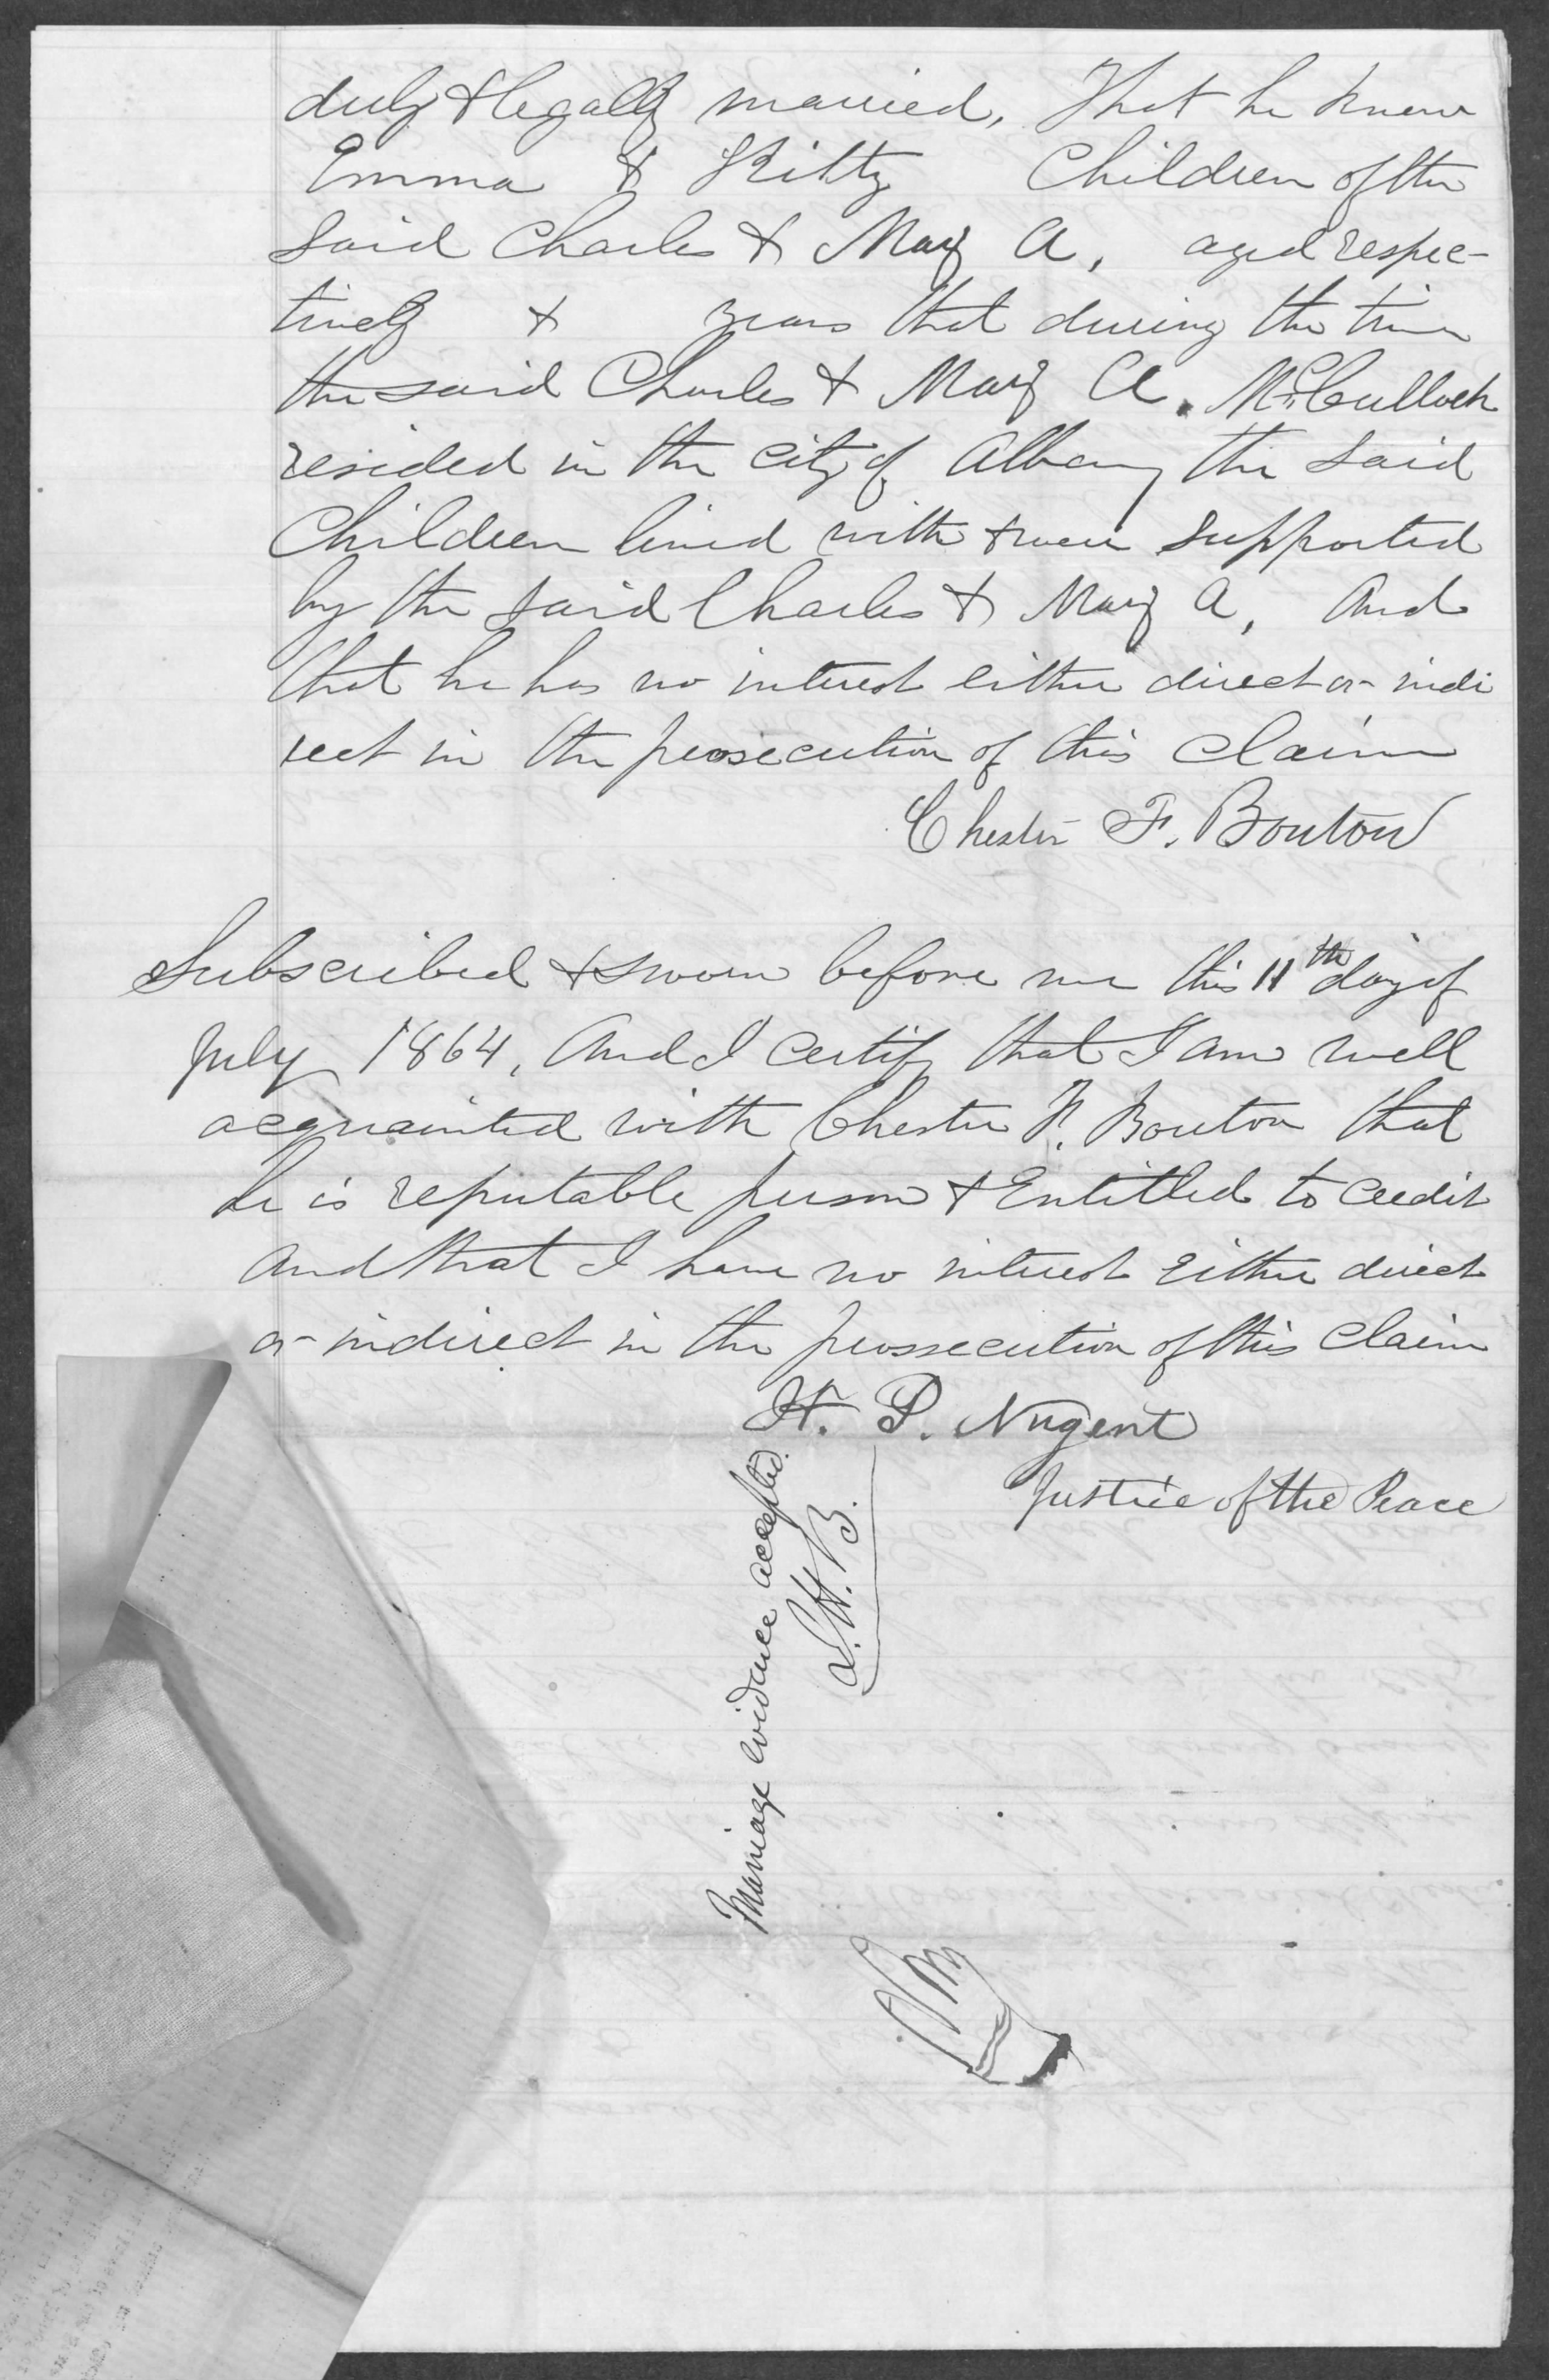 duly & legally married, That he knew
Emma & Kitty Children of the
said Charles & Mary A, aged respec-
tively & years that during the time
the said Charles & Mary A. McCulloch
resided in the city of Albany the said
Children lived with & were supported
by the said Charles & Mary A, And
that he has no interest either direct or indi
rect in the prosecution of this claim
Chester F. Bouton
Subscribed & sworn before me this 11th day of
July 1864, And I certify that I am well
acquainted with Chester F. Bouton that
he is reputable person & Entitled to credit
And that I have no interest either direct
or indirect in the prossecution of this claim
H. P. Nugent
Justice of the Peace
Marriage evidence accepted.
L.H.B.